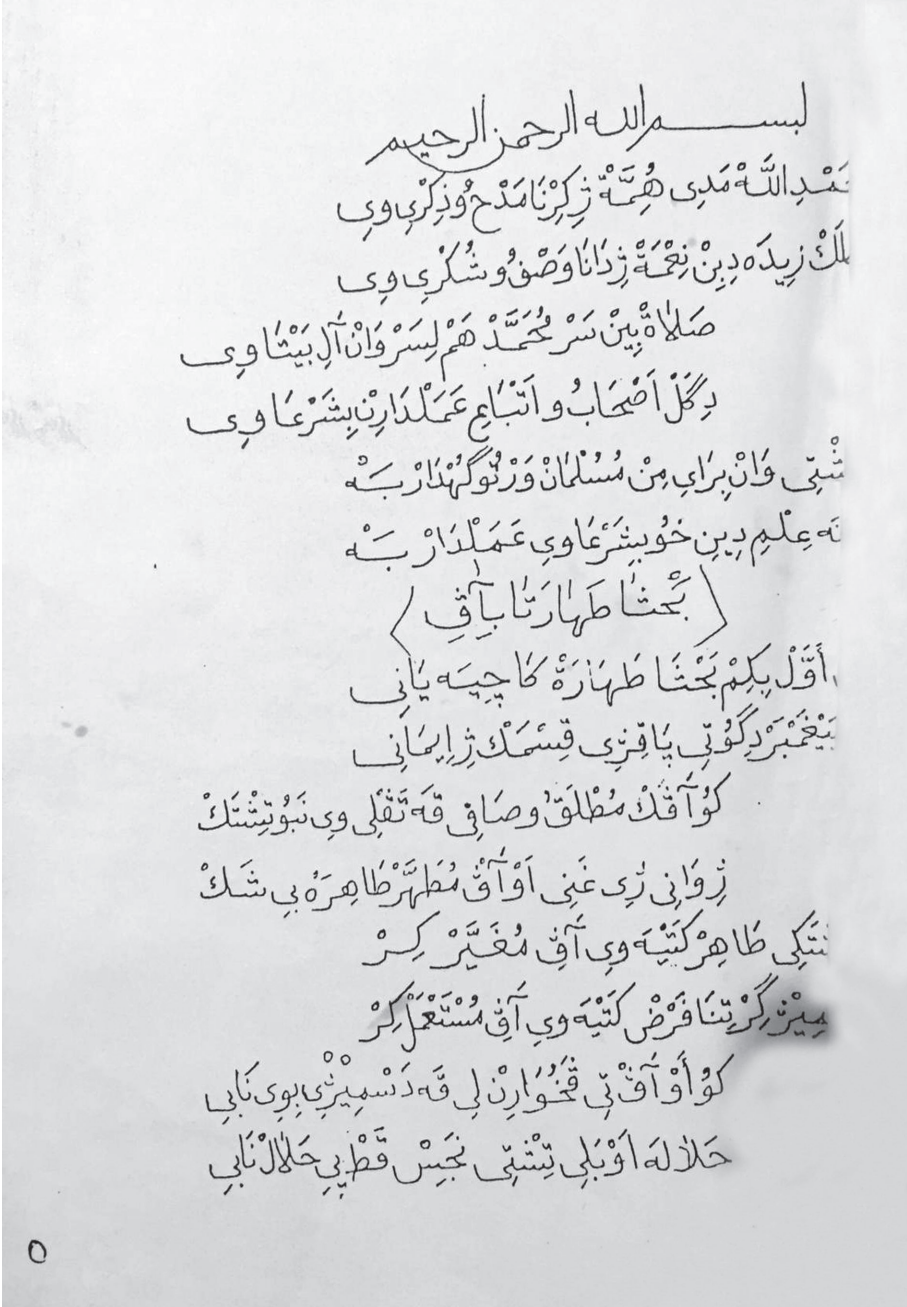 بســـم الله الرحمن الرحيم
حَمْدِ اللَّهْ مَدِى هِمَّةْ ژِكِرْنَا مَدْح وُذِكْرِي وِى
مَلَكْ زِيدَه دِبِنْ نِعْمَةْ ژِدَانَا وَصْفُ و شُكْرِي وِى
صَلاٰةْ بِيْنْ سَرْ مُحَمَّدْ هَمْ لِسَرْ وَانْ آلِ بَيْتَا وِى
دِگَلْ اَصْحَابُ و اَتْبَاعِ عَمَلْدَارِنْ بِشَرْعَا وِى
وَانْ بِرَايِ مِنْ مُسُلْمَانْ وَرْنُو گُهْدَارْ بَـهْ
عِلْمِ دِينِ خُو بِشَرْعَا وِي عَمَلْدَارْ بَـهْ
〈 بَحْثَا طَهٰارَتَا بِآڤِ 〉
أَوَّلْ بِكِمْ بَحْثَا طَهَارَةْ كَا چِيَه يَانِى
پَيْغَمْبَرْ دِگُوتِى پَاقِژِى قِسْمَكْ ژِاِيمَانِى
كُو آڤَكْ مُطْلَقُ و صَافِى ڤَه تَڤْلِى وِى نَبُو تِشْتَكْ
ژِوَانِى ژِى غَنِى اَوْ آڤْ مُطَهَّرْ طَاهِرَهْ بِي شَـكْ
طَاهِرْ كَتِيْه وِى آڤِ مُغَيَّرْ كِـرْ
گِرْتِنَا فَرْضْ كَتِيْه وِي آڤِ مُسْتَعْمَلْ كِرْ
كُو أَوْ آڤْ تِى ڤَخُوَارِنْ لِى ڤَه دَسْمِيْژْ ژِى بِوِى نَابِى
حَلاٰلَه اَوْ بَلِى تِشْتِى نَجِسْ قَطْ پِي حَلاٰلْ نَابِى
٥